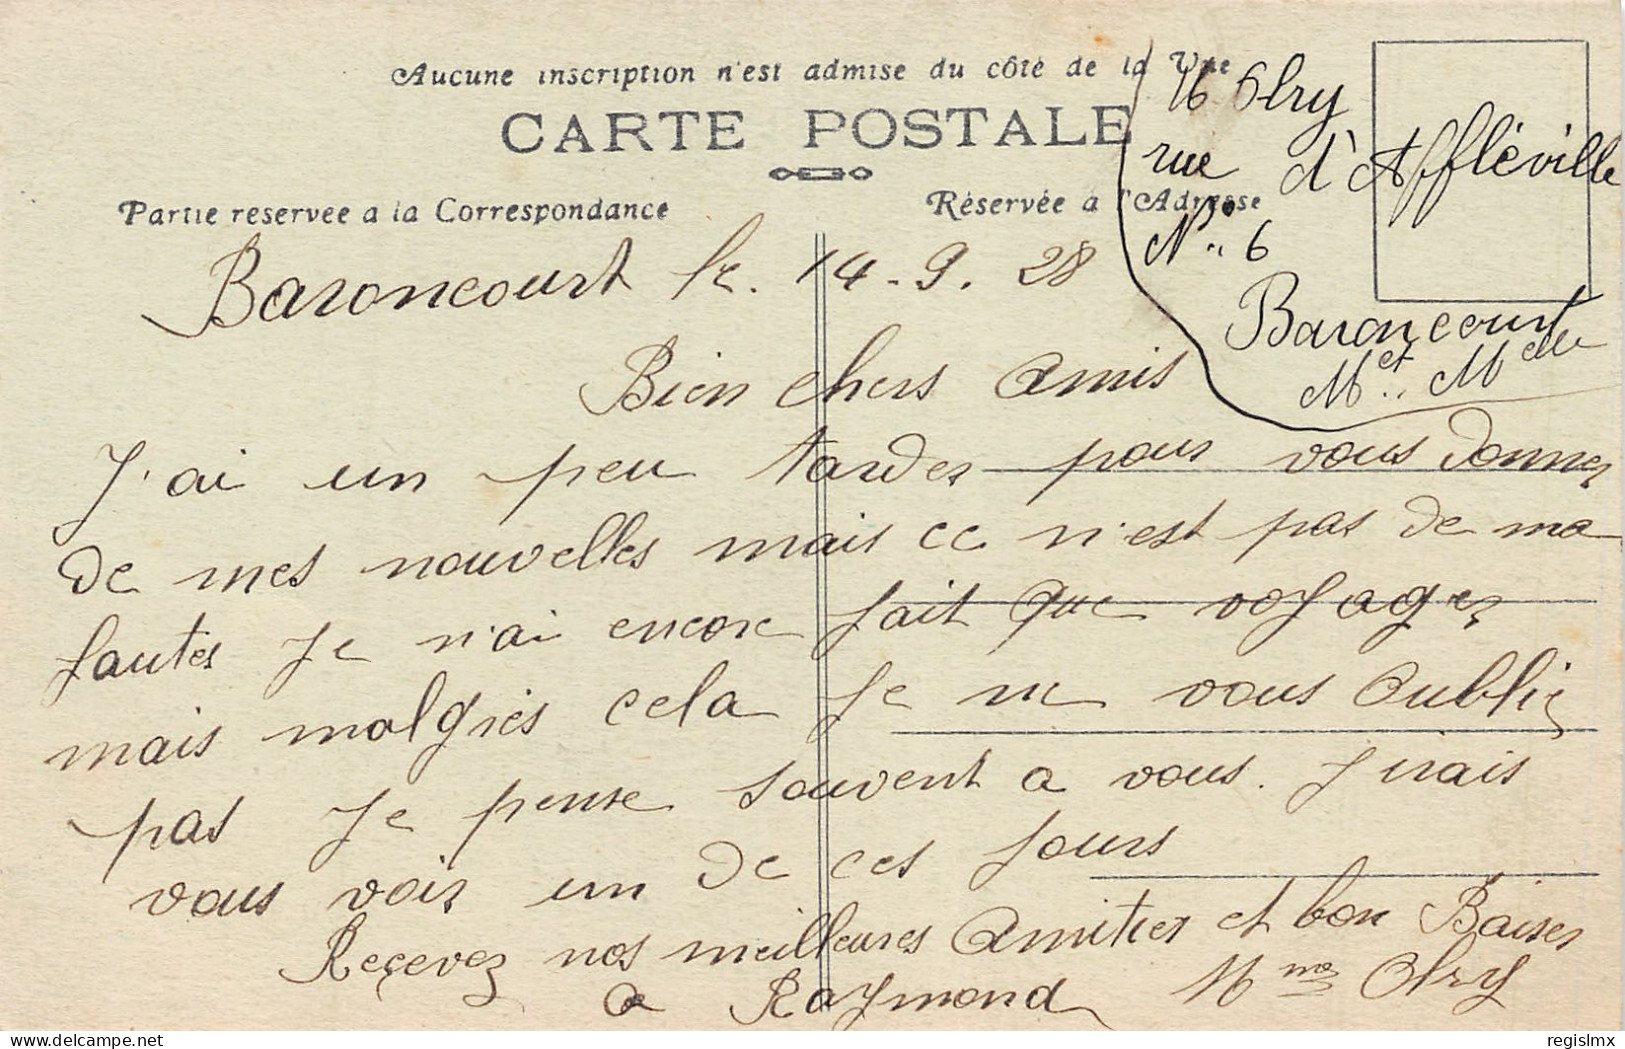 Aucune inscription n'est admise du côté de la Vue
CARTE POSTALE
Partie reservee a la Correspondance
Réservée à l'Adresse
M Olry
rue d'Affléville
N° 6
Baroncourt
Met M elle
Baroncourt le. 14-9.28
Bien chers Amis
J'ai un peu tarder pour vous Donner
de mes nouvelles mais ce n'est pas de ma
fautes Je n'ai encore fait que voyager
mais malgres cela Je ne vous oublie
pas Je pense souvent a vous. J'irais
vous voir un de ces Jours
Recevez nos meilleures Amities et bon Baiser
a Raymond Mme Olry
delcampe.net
regislmx